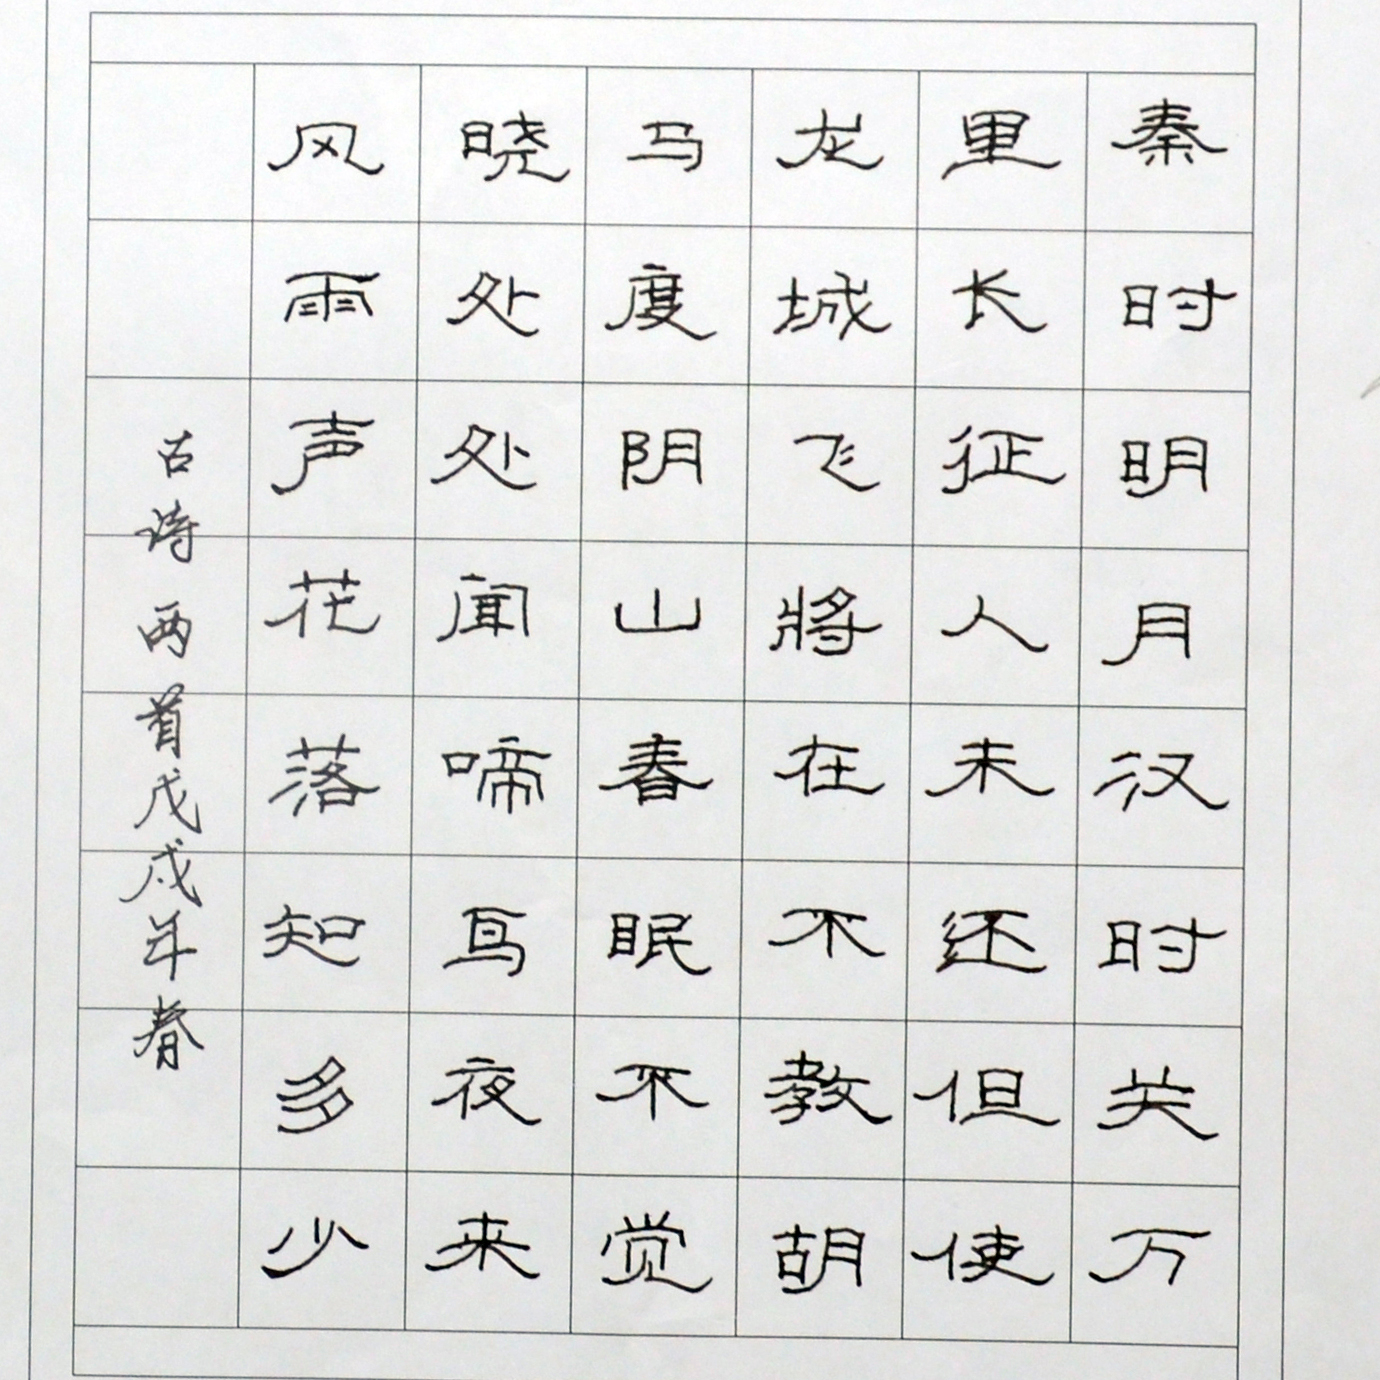 秦时明月汉时关万
里长征人未还但使
龙城飞將在不教胡
马度阴山春眠不觉
晓处处闻啼鸟夜来
风雨声花落知多少
古诗两首戊戌年春